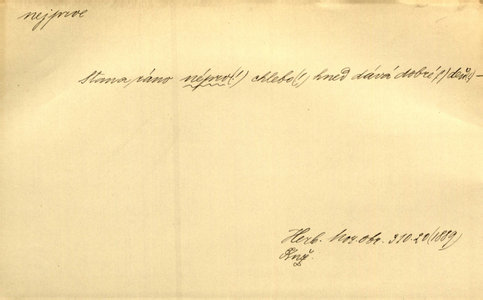 nejprve
Stana ráno néprv(!) chlebo(!) hned dává dobré(!) deň(!) –
Herb. Mor. obr. 310.20 (1889)